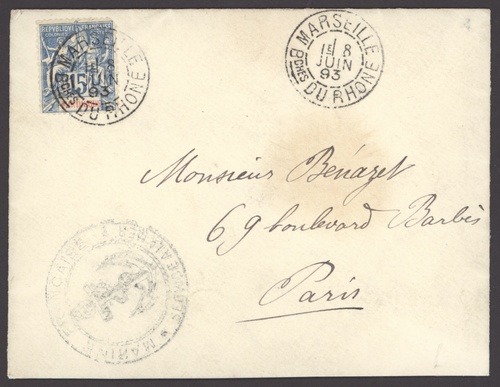 REPUBLIQUE FRANÇAISE
15
MARSEILLE
JUIN
93
BCHES DU RHONE
MARSEILLE
1E 8
JUIN
93
BCHES DU RHONE
Monsieur Bénazet
69 boulevard Barbès
Paris
MARINE